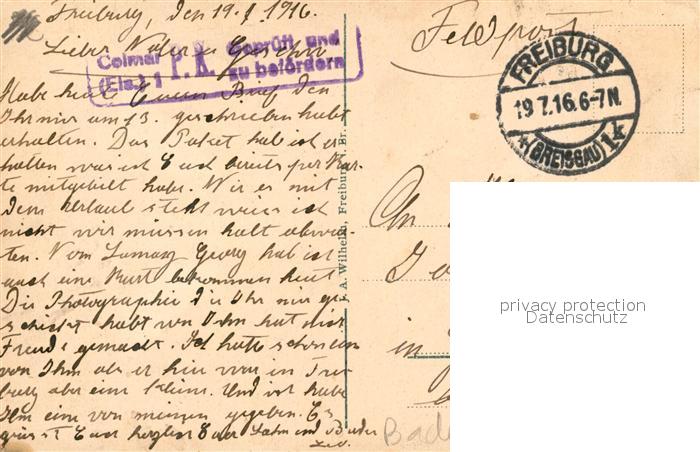 Freiburg, den 19.7.1916.
Lieber Vater u. Geschw.
Colmar P.K. Geprüft und
(Els.) 1 zu befördern
Habe heut Euren Brief den
Ihr mir am 13. geschrieben habt
erhalten. Das Paket hab ich er
halten was ich Euch bereits per Kar-
te mitgeteilt habe. Wie es mit
dem Urlaub steht weis ich
nicht wir müssen halt abwar-
ten. Vom Georg hab ich
auch eine Kart bekommen heut
Die Photographie die Ihr mir ge
schickt habt von Ihm hat mich
Freude gemacht. Ich hatte schon
von Ihm als er hier war in Frei
burg aber eine kleine. Und ich habe
Ihm eine von meinen gegeben. Es
grüsst Euch herzlich Euer Sohn und Bruder
Feldpost
FREIBURG
19.7.16. 6-7N.
(BREISGAU) 1k
J. A. Wilhelm, Freiburg i. Br.
An
in
Bade
privacy protection
Datenschutz